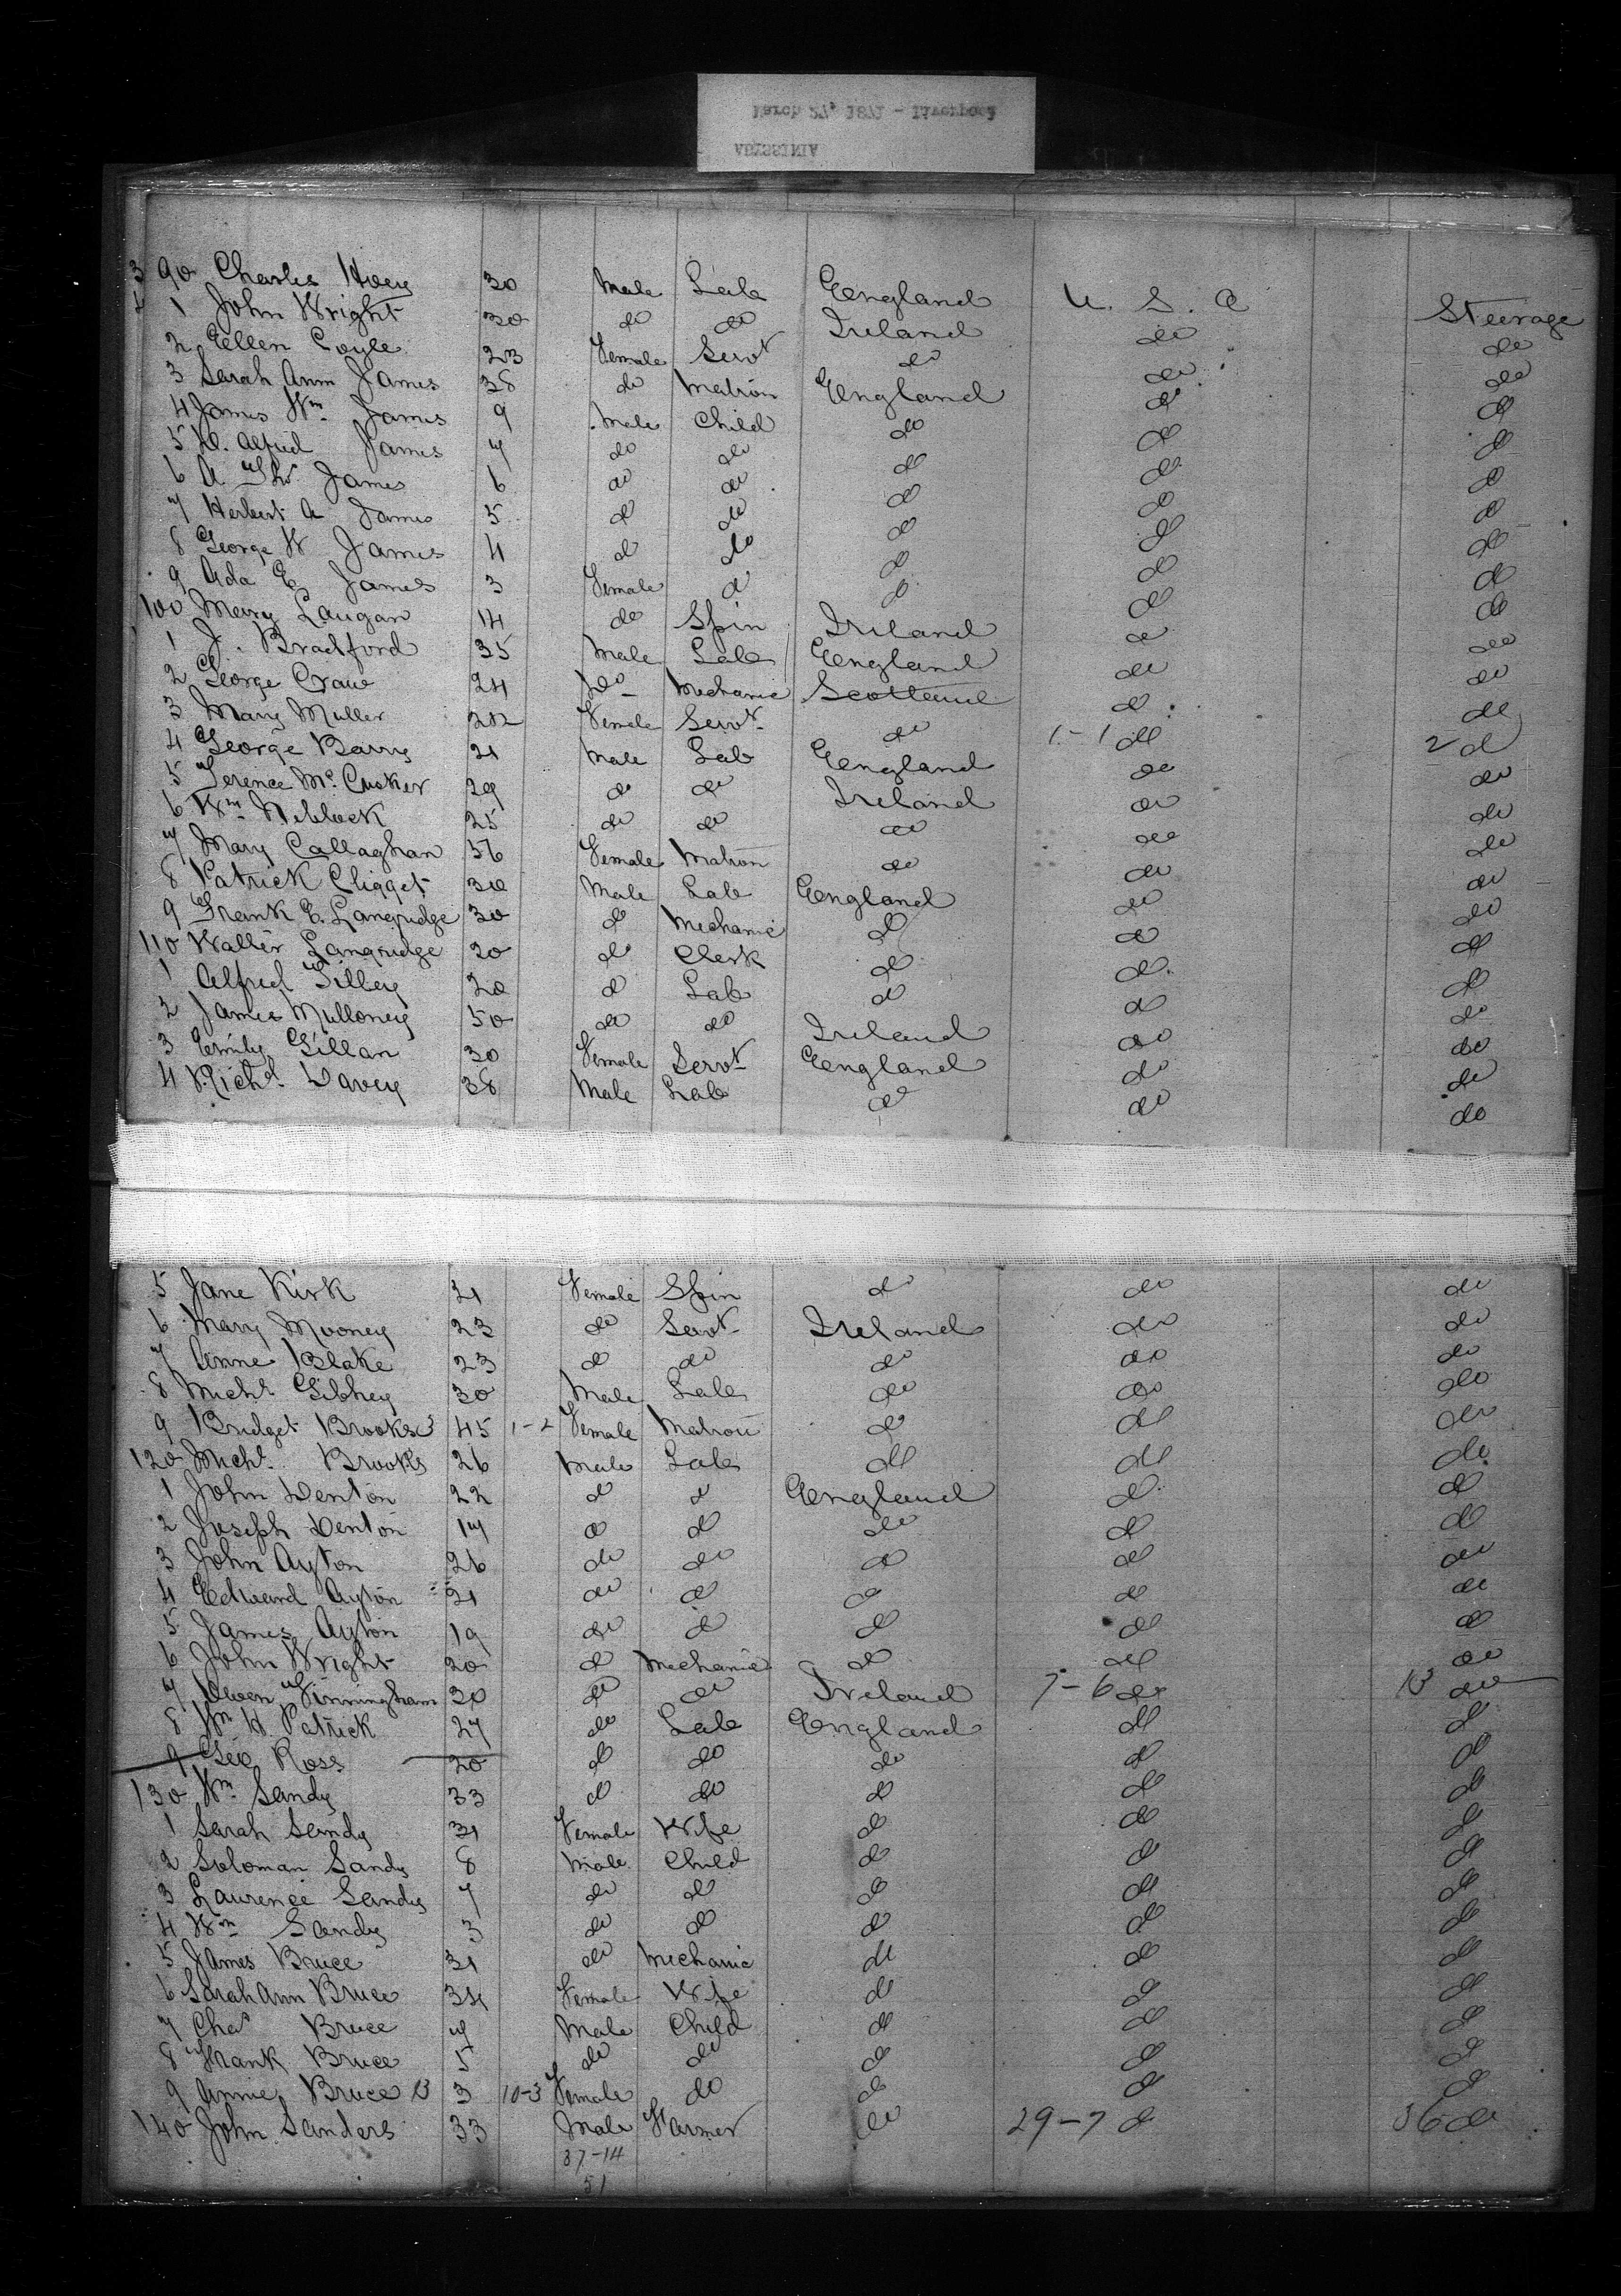 March 27, 1871 - Liverpool
ABYSSINIA
90 Charles Hoey 30 Male Lab England U. S. A Steerage
1 John Wright 30 do do Ireland do do
2 Ellen Coyle 23 Female Servt do do do
3 Sarah Ann James 38 do Matron England do do
4 James Wm James 9 Male Child do do do
5 W. Alfred James 7 do do do do do
6 A. James 6 do do do do do
7 Herbert A James 5 do do do do do
8 George W James 4 do do do do do
9 Ada E James 3 Female do do do do
100 Mary Laugan 14 do Spin Ireland do do
1 J. Bradford 35 Male Lab England do do
2 George Craw 24 Do Mechanic Scotland do do
3 Mary Muller 22 Female Servt do do do
4 George Barry 21 Male Lab England 1-1 do 2 do
5 Terence Mc Cusker 29 do do Ireland do do
6 Wm Niblock 25 do do do do do
7 Mary Callaghan 56 Female Matron do do do
8 Patrick Cligget 30 Male Lab England do do
9 Frank E. Langridge 30 do Mechanic do do do
110 Walter Langridge 20 do Clerk do do do
1 Alfred Tilley 20 do Lab do do do
2 James Mulloney 50 do do Ireland do do
3 Emily Gillan 30 Female Servt England do do
4 Richd Davey 38 Male Lab do do do
5 Jane Kirk 21 Female Spin do do do
6 Mary Mooney 23 do Servt Ireland do do
7 Anne Blake 23 do do do do do
8 Michl Gibney 30 Male Lab do do do
9 Bridget Brooks 45 1-2 Female Matron do do do
120 Michl Brooks 26 Male Lab do do do
1 John Denton 22 do do England do do
2 Joseph Denton 17 do do do do do
3 John Ayton 26 do do do do do
4 Edward Ayton 21 do do do do do
5 James Ayton 19 do do do do do
6 John Wright 20 do Mechanic do do do
7 Owen Finningham 30 do do Ireland 7-6 do 13 do
8 Wm H. Patrick 27 do Lab England do do
9 Geo Ross 20 do do do do do
130 Wm Sandy 33 do do do do do
1 Sarah Sandy 31 Female Wife do do do
2 Soloman Sandy 8 Male Child do do do
3 Laurence Sandy 7 do do do do do
4 Wm Sandy 3 do do do do do
5 James Bruce 31 do Mechanic do do do
6 Sarah Ann Bruce 34 Female Wife do do do
7 Chas Bruce 7 Male Child do do do
8 Frank Bruce 5 do do do do do
9 Annie Bruce 13 3 10-3 Female do do do do
140 John Sanders 33 Male Farmer do 29-7 do 36 do
37-14
51